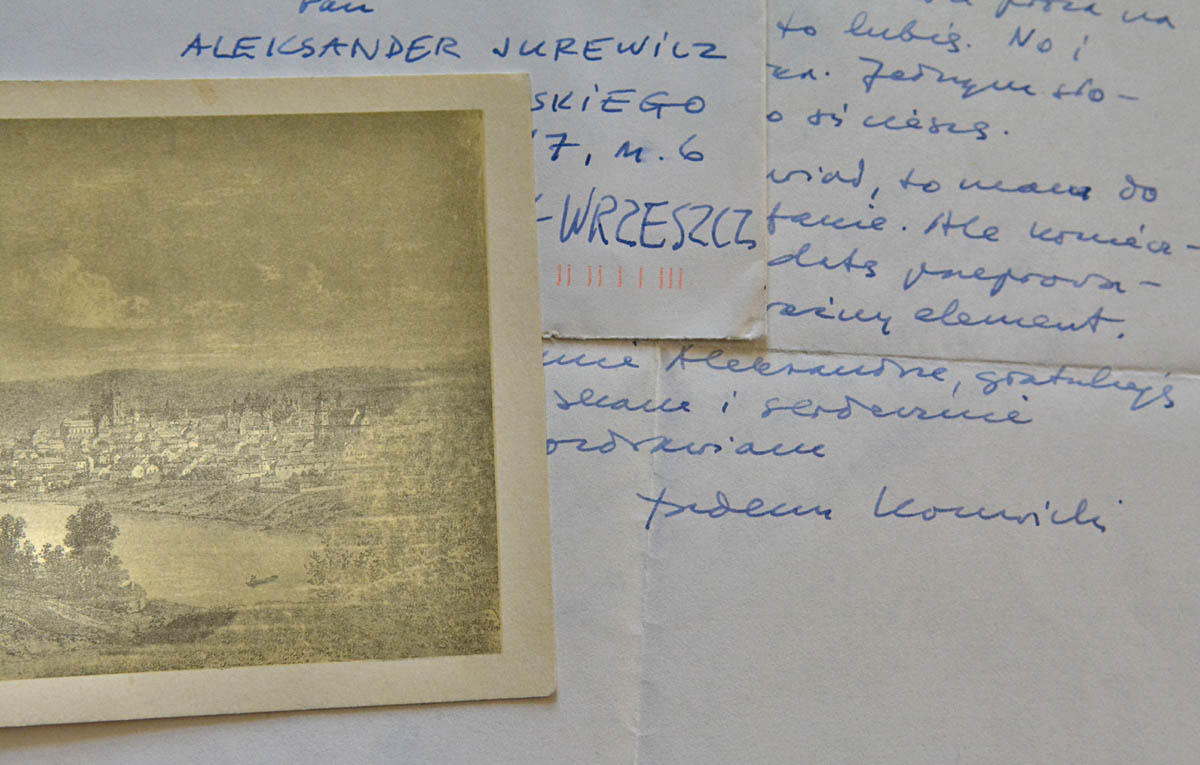 Pan
ALEKSANDER JUREWICZ
SKIEGO
17, m. 6
-WRZESZCZ
proza na
to lubię. No i
Jednym sło-
się cieszę.
wiad, to mam do
tanie. Ale koniecz-
detą przeprowa-
ważny element.
Aleksandrze, gratuluję
i serdecznie
ozdrawiam
Tadeusz Konwicki